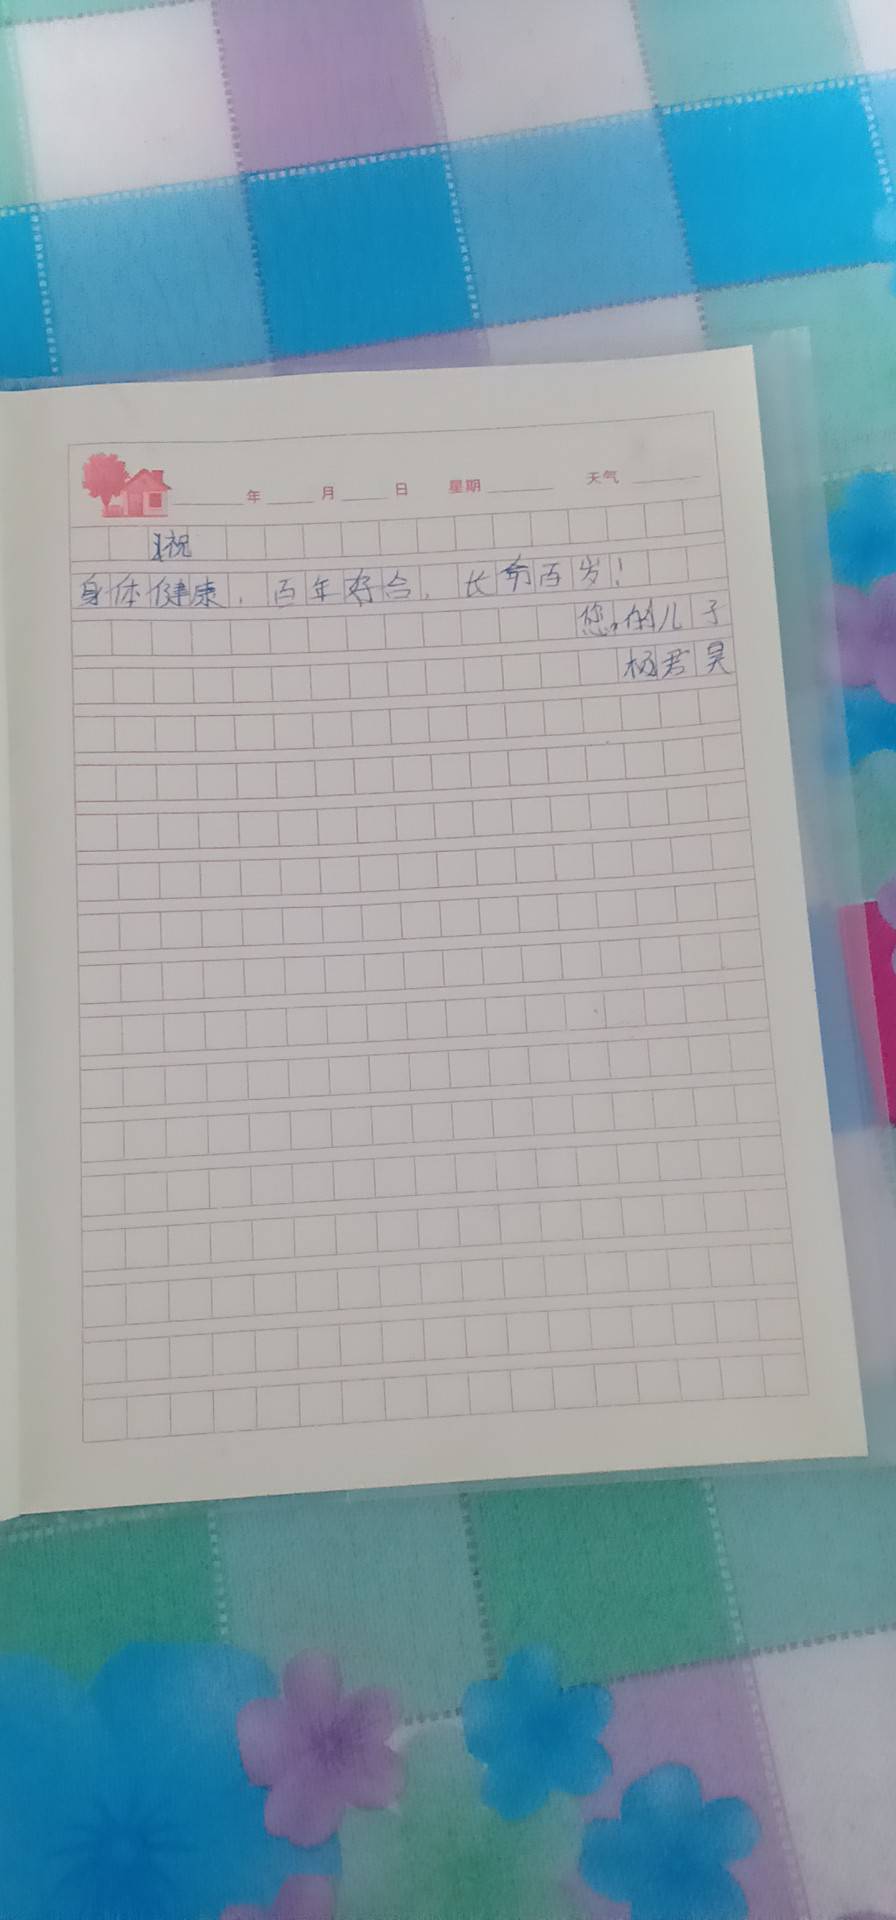 年 月 日 星期 天气
祝
身体健康，百年好合，长命百岁！
您的儿子
杨君昊